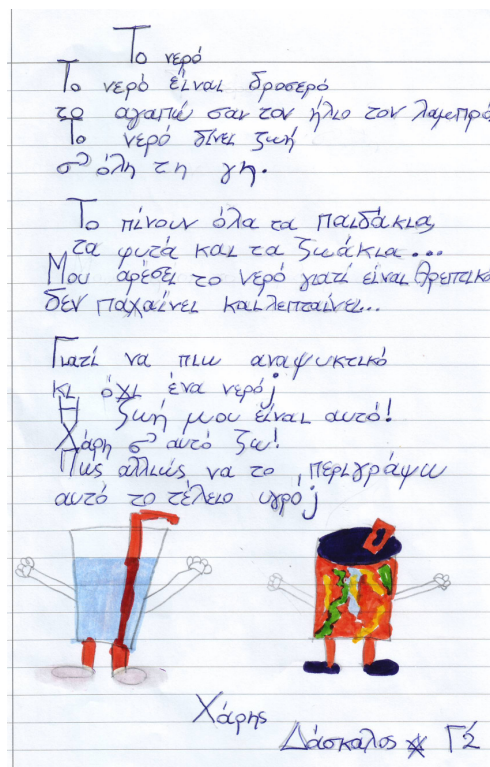 Το νερό
Το νερό είναι δροσερό
το αγαπώ σαν τον ήλιο τον λαμπρό
Το νερό δίνει ζωή
σ' όλη τη γη.
Το πίνουν όλα τα παιδάκια,
τα φυτά και τα ζωάκια...
Μου αρέσει το νερό γιατί είναι θρεπτικό
δεν παχαίνει και λεπταίνει...
Γιατί να πιω αναψυκτικό
κι όχι ένα νερό;
Η ζωή μου είναι αυτό!
Χάρη σ' αυτό ζω!
Πώς αλλιώς να το περιγράψω
αυτό το τέλειο υγρό;
Χάρης
Δάσκαλος Γ2